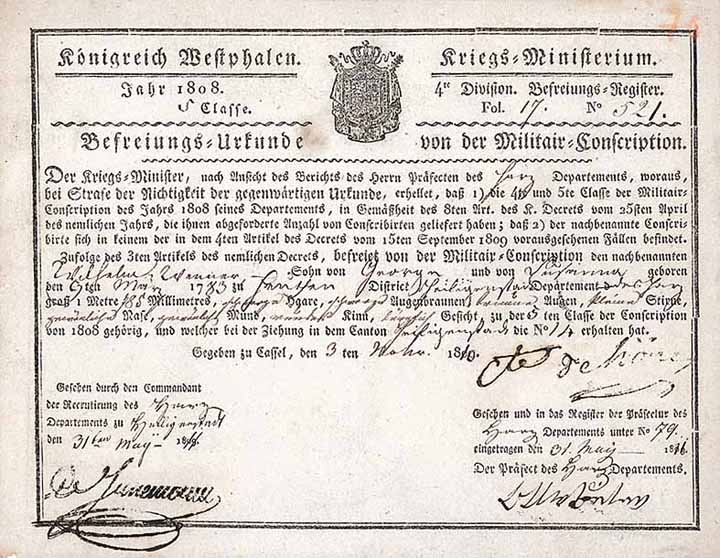 Königreich Westphalen.
Kriegs-Ministerium.
Jahr 1808.
5 Classe.
4te Division. Befreiungs-Register.
Fol. 17. No 521.
Befreiungs-Urkunde von der Militair-Conscription.
Der Kriegs-Minister, nach Ansicht des Berichts des Herrn Präfecten des Harz Departements, woraus,
bei Strafe der Nichtigkeit der gegenwärtigen Urkunde, erhellet, daß 1) die 4te und 5te Classe der Militair-
Conscription des Jahrs 1808 seines Departements, in Gemäßheit des 8ten Art. des K. Decrets vom 25sten April
des nemlichen Jahrs, die ihnen abgeforderte Anzahl von Conscribirten geliefert haben; daß 2) der nachbenannte Conscri-
birte sich in keinem der in dem 4ten Artikel des Decrets vom 15ten September 1809 vorausgesehenen Fällen befindet.
Zufolge des 3ten Artikels des nemlichen Decrets, befreiet von der Militair-Conscription den nachbenannten
Wilhelm Werner Sohn von George und von Susanna geboren
den 9ten May 1783 zu District Heiligenstadt Departement des Harz
groß 1 Metre Millimetres, schwarze Haare, schwarze Augenbraunen, braune Augen, kleine Stirne,
gewöhnliche Nase, gewöhnliche Mund, rundes Kinn, Gesicht, zu der 5 ten Classe der Conscription
von 1808 gehörig, und welcher bei der Ziehung in dem Canton Heiligenstadt die No 14 erhalten hat.
Gegeben zu Cassel, den 3 ten Novbr. 1810.
Gesehen durch den Commandant
der Recrutirung des Harz
Departements zu Heiligenstadt
den 31ten May 18
Gesehen und in das Register der Präfectur des
Harz Departements unter No 79.
eingetragen den 31. May 18
Der Präfect des Harz Departements.